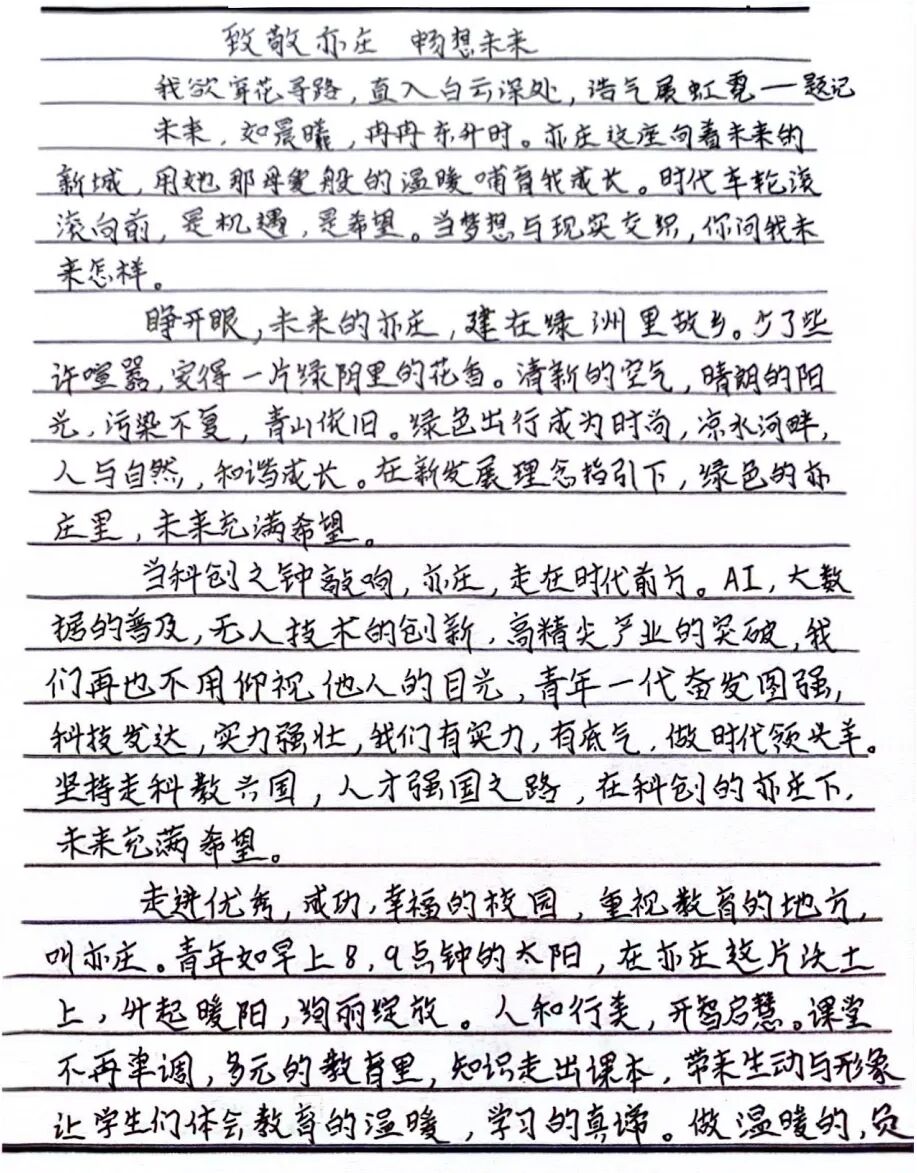 致敬亦庄 畅想未来
我欲穿花寻路，直入白云深处，浩气展虹霓——题记
未来，如晨曦，冉冉东升时。亦庄这座向着未来的
新城，用她那母爱般的温暖哺育我成长。时代车轮滚
滚向前，是机遇，是希望。当梦想与现实交织，你问我未
来怎样。
睁开眼，未来的亦庄，建在绿洲里故乡。少了些
许喧嚣，变得一片绿阴里的花香。清新的空气，晴朗的阳
光，污染不复，青山依旧。绿色出行成为时尚，凉水河畔，
人与自然，和谐成长。在新发展理念指引下，绿色的亦
庄里，未来充满希望。
当科创之钟敲响，亦庄，走在时代前方。AI，大数
据的普及，无人技术的创新，高精尖产业的突破，我
们再也不用仰视他人的目光，青年一代奋发图强，
科技发达，实力强壮，我们有实力，有底气，做时代领头羊。
坚持走科教兴国，人才强国之路，在科创的亦庄下，
未来充满希望。
走进优秀，成功，幸福的校园，重视教育的地方，
叫亦庄。青年如早上8，9点钟的太阳，在亦庄这片沃土
上，升起暖阳，绚丽绽放。人和行美，开智启慧。课堂
不再单调，多元的教育里，知识走出课本，带来生动与形象
让学生们体会教育的温暖，学习的真谛。做温暖的，负